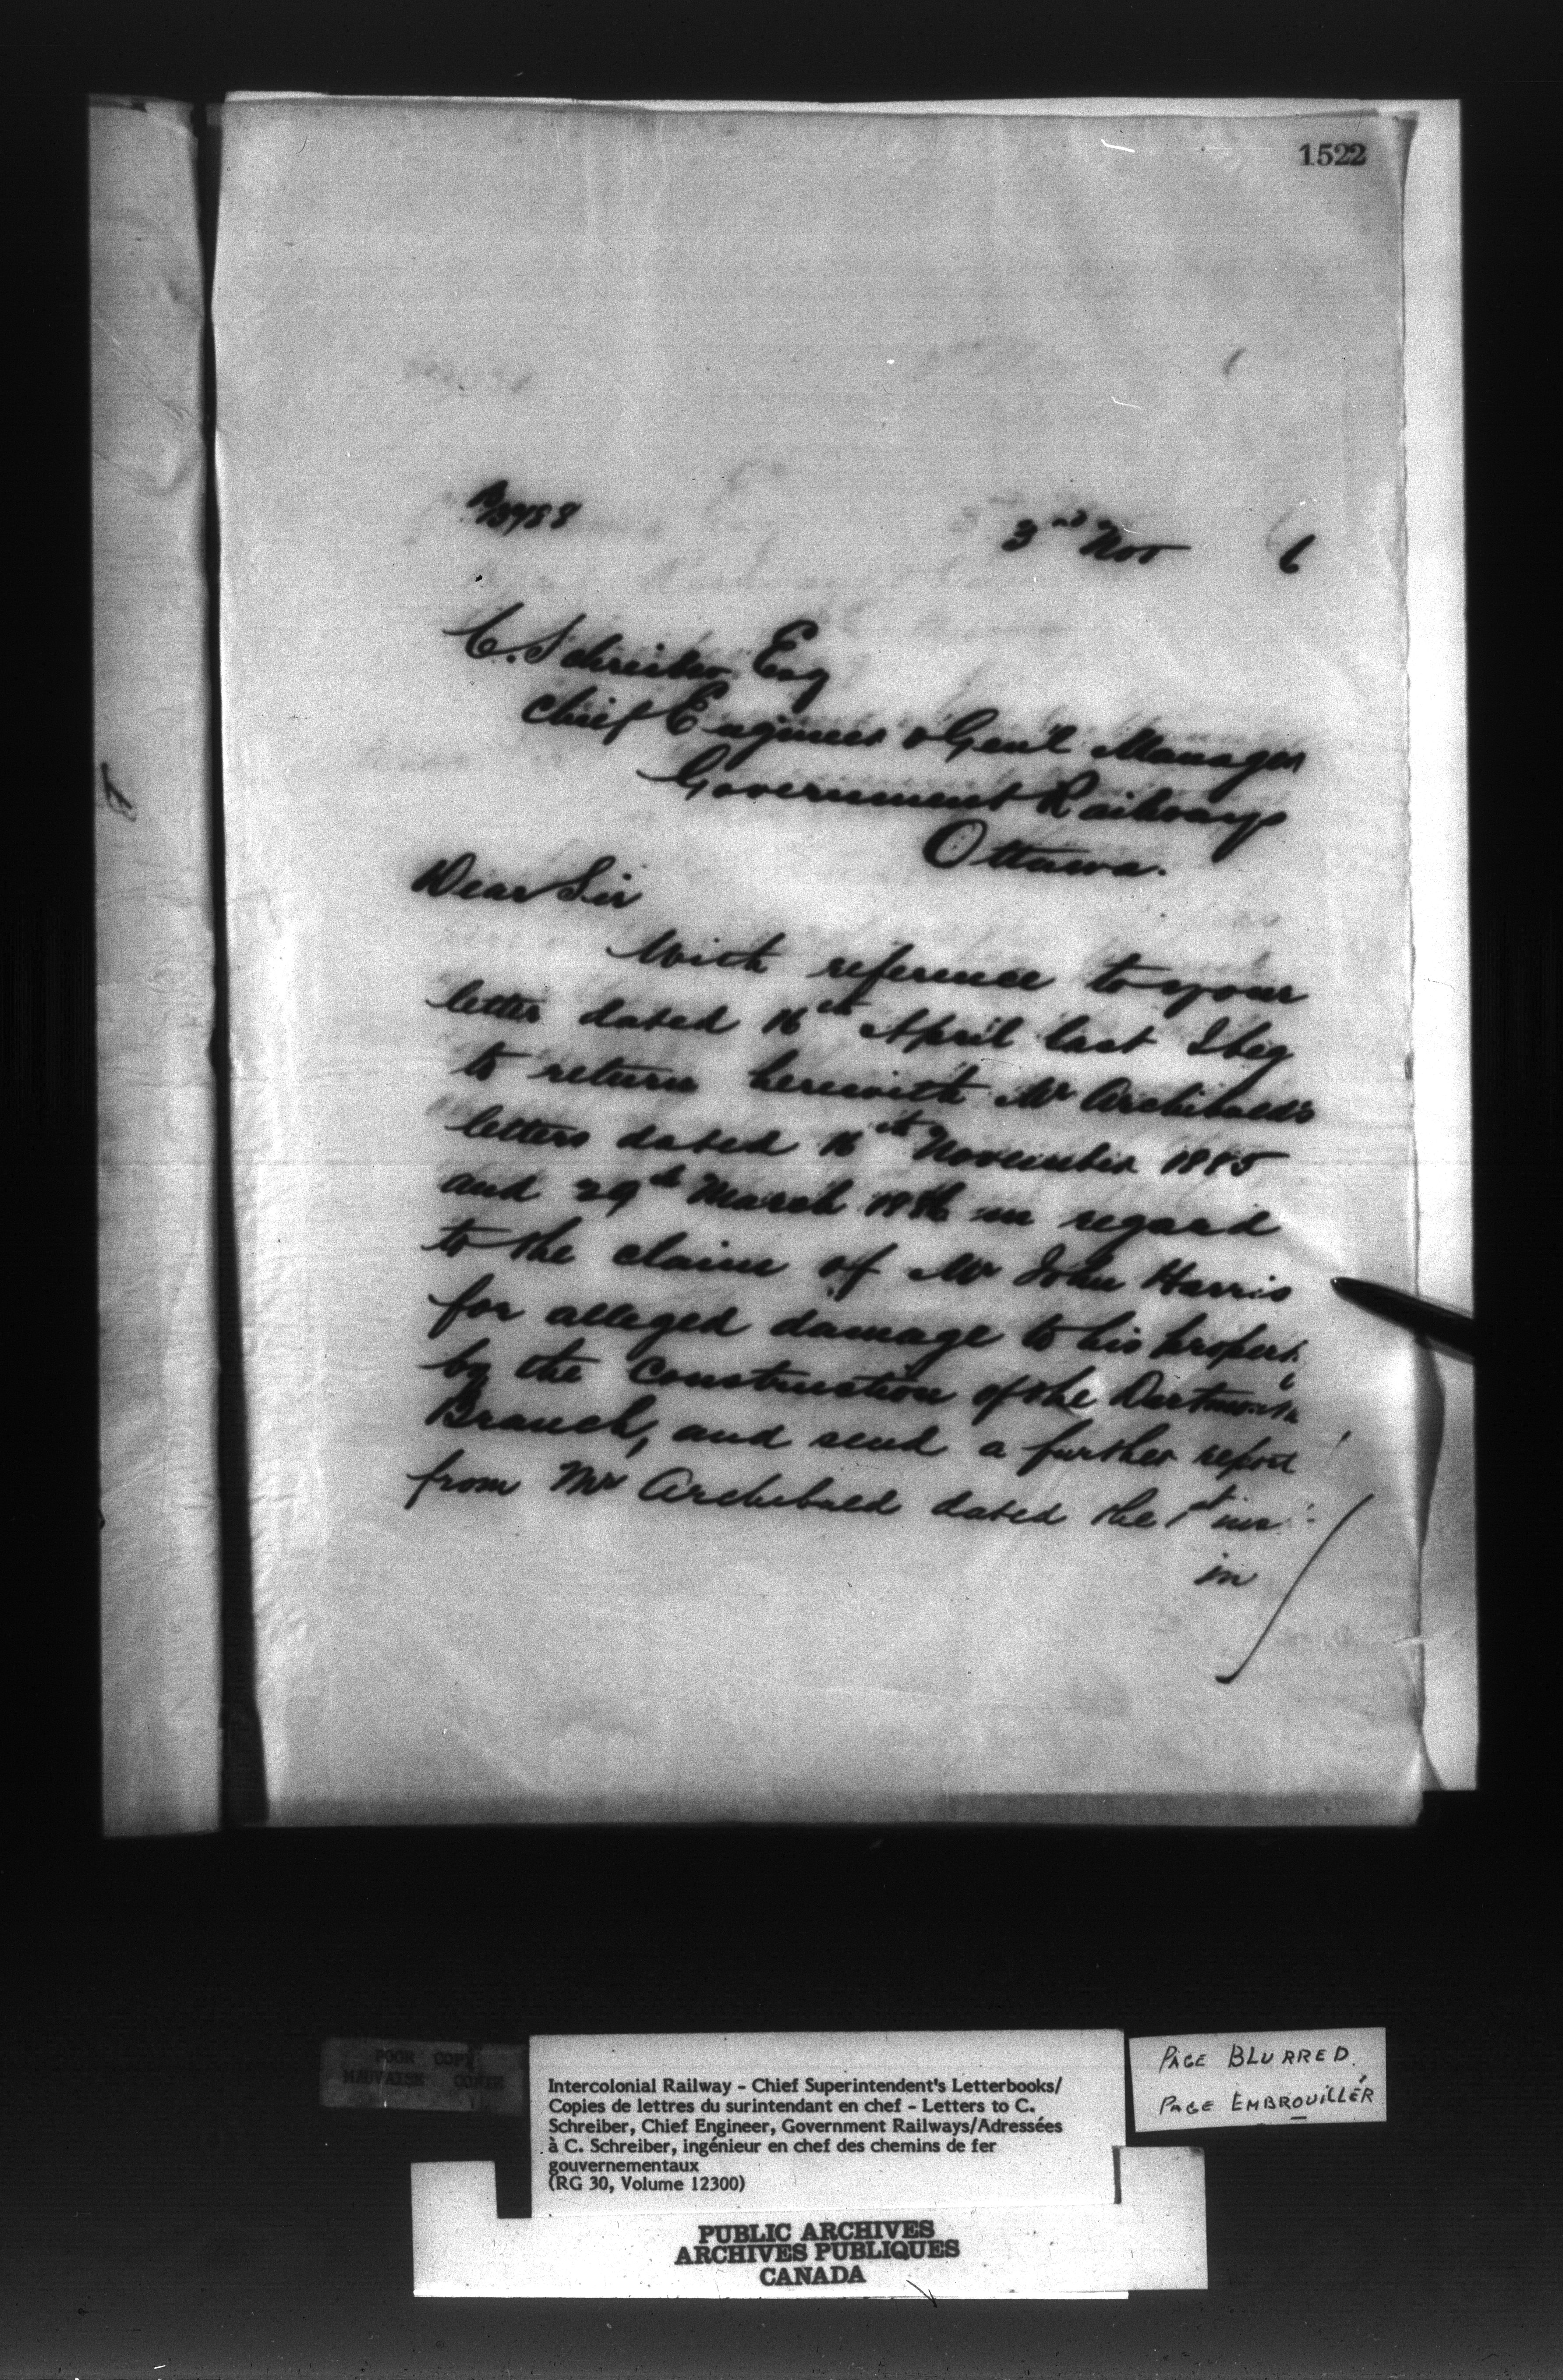 1522
3rd Nov 6
C. Schreiber Esq
Chief Engineer & Gen'l Manager
Government Railways
Ottawa.
Dear Sir
With reference to your
letter dated 16th April last I beg
to return herewith Mr Archibald's
letters dated 16th November 1885
and 29th March 1886 in regard
to the claim of Mr John Harris
for alleged damage to his property
by the Construction of the Dartmouth
Branch, and send a further report
from Mr Archibald dated the 1st ins
in
POOR COPY
MAUVAISE COPIE
Intercolonial Railway – Chief Superintendent's Letterbooks/
Copies de lettres du surintendant en chef – Letters to C.
Schreiber, Chief Engineer, Government Railways/Adressées
à C. Schreiber, ingénieur en chef des chemins de fer
gouvernementaux
(RG 30, Volume 12300)
PAGE BLURRED.
PAGE EMBROUILLÉR
PUBLIC ARCHIVES
ARCHIVES PUBLIQUES
CANADA